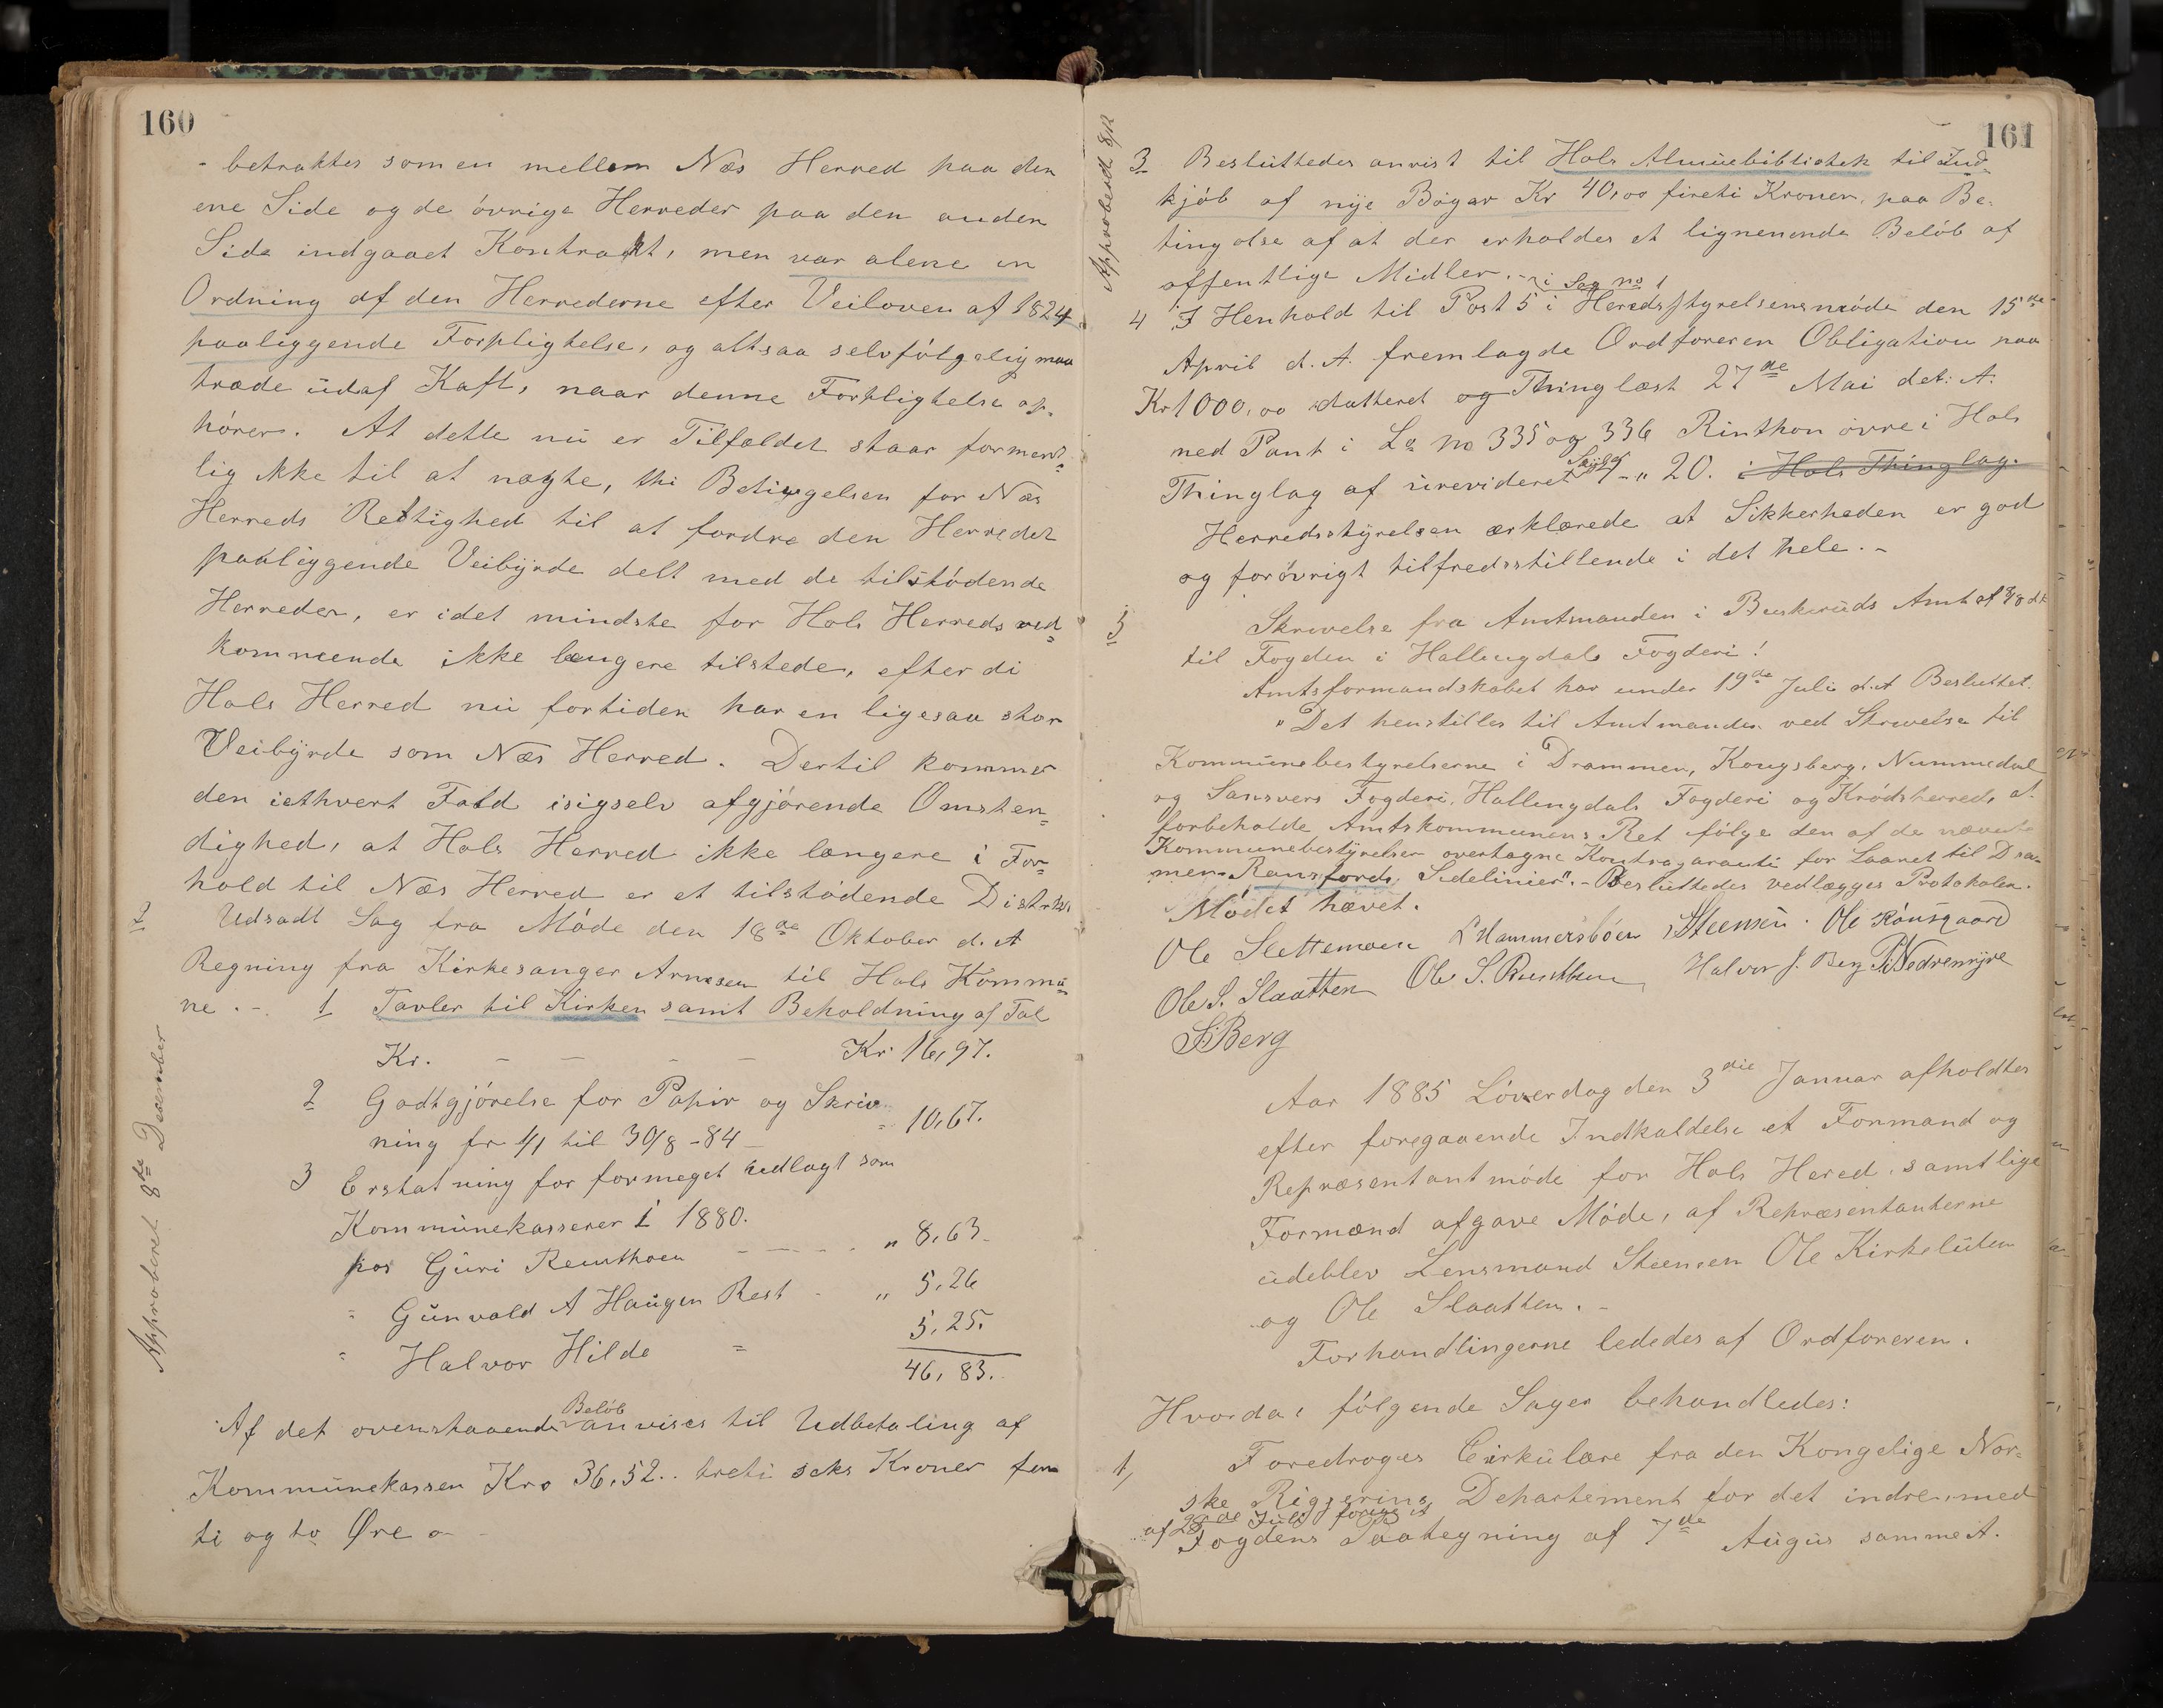 160
- betraktes som en mellem Næs Herred paa den
ene Side og de øvrige Herreder paa den anden
Side indgaaet Kontrakt, men var alene en
Ordning af den Herrederne efter Veiloven af 1824
paaliggende Forpligtelse, og altsaa selvfølgelig maa
træde ud af Kaft, naar denne Forpligtelse op-
hører. At dette nu er Tilfældet staar forment-
lig ikke til at nægte, thi Betingelsen for Næs
Herreds Rettighed til at fordre den Herredet
paaliggende Veibyrde delt med de tilstødende
Herreder, er idet mindste for Hols Herreds ved-
kommende ikke længere tilstede, efter di
Hols Herred nu fortiden har en ligesaa stor
Veibyrde som Næs Herred. Dertil kommer
den iethvert Fald isigselv afgjørende Omsten-
dighed, at Hols Herred ikke længere i For-
hold til Næs Herred er et tilstødende Distrikt.
2 Udsadt Sag fra Møde den 18de Oktober d. A
Regning fra Kirkesanger Arnesen til Hols Kommu-
ne. - 1 Tavler til Kirken samt Beholdning af Tal
Kr. - - - - Kr 16,97.
2 Godtgjørelse for Papir og Skriv
ning fr 1/1 til 30/8 - 84 - " 10,67.
3 Erstatning for formeget udlagt som
Kommunekasserer i 1880.
for Guri Reinthoen - - - - " 8,63.
" Gunvald A Haugen Rest - " 5,26
" Halvor Hilde " 5,25.
46,83.
Af det ovenstaaende Beløb anvises til Udbetaling af
Kommunekassen Kro 36,52.. treti seks Kroner fem
ti og to Øre
Approberet 8de Desember
161
Approberet 8/12
3 Besluttedes anvist til Hols Almuebibliotek til Ind
kjøb af nye Bøger Kr 40,00 fireti Kroner, paa Be-
tingelse af at der erholdes et lignenende Beløb af
offentlige Midler. -
i Sag no 1
4 I Henhold til Post 5 i Heredsstyrelsensmøde den 15de
April d. A. fremlagde Ordføreren Obligation paa
Kr 1000,00 datteret og Thinglæst 27de Mai det: A.
med Pant i L No 335 og 336 Rinthon øvre i Hols
Thinglag af urevideret Skyld - " 20. i Hols Thinglag.
Herredsstyrelsen ærklærede at Sikkerheden er god
og forøvrigt tilfredsstillende i det hele. -
5 Skrivelse fra Amtmanden i Buskeruds Amt af
til Fogden i Hallingdals Fogderi!
Amtsformandskabet har under 19de Juli d. A Besluttet.
"Det henstilles til Amtmanden ved Skrivelse til
Kommunebestyrelserne i Drammen, Kongsberg, Nummedal
og Sansvers Fogderi, Hallingdals Fogderi og Krødsherred, at
forbeholde Amtskommunens Ret følge den af de nævnte
Kommunebestyrelser overtagne Kontragaranti for Laanet til Dra-
men-Ransfords Sidelinier". - Besluttedes vedlægges Protokolen.
Mødet hævet.
Ole Slettemoen L Hammersbøen Steensen. Ole Rønsgaard
Ole S. Slaatten Ole S. Rinthun Halvor J. Berg P. Nedremyre
S Berg
Aar 1885 Løverdag den 3die Januar afholdtes
efter foregaaende Indkaldelse et Formand og
Repræsentantmøde for Hols Hered, samtlige
Formænd afgave Møde, af Repræsentanterne
udeblev Lensmand Steensen Ole Kirkeluten
og Ole Slaatten. -
Forhandlingerne lededes af Ordføreren.
Hvorda følgende Sager behandledes:
1, Foredroges Cirkulære fra den Kongelige Nor-
ske Rigjerings Departement for det indre, med
af 28de Juli forige A
Fogdens Paategning af 7de Augus samme A.